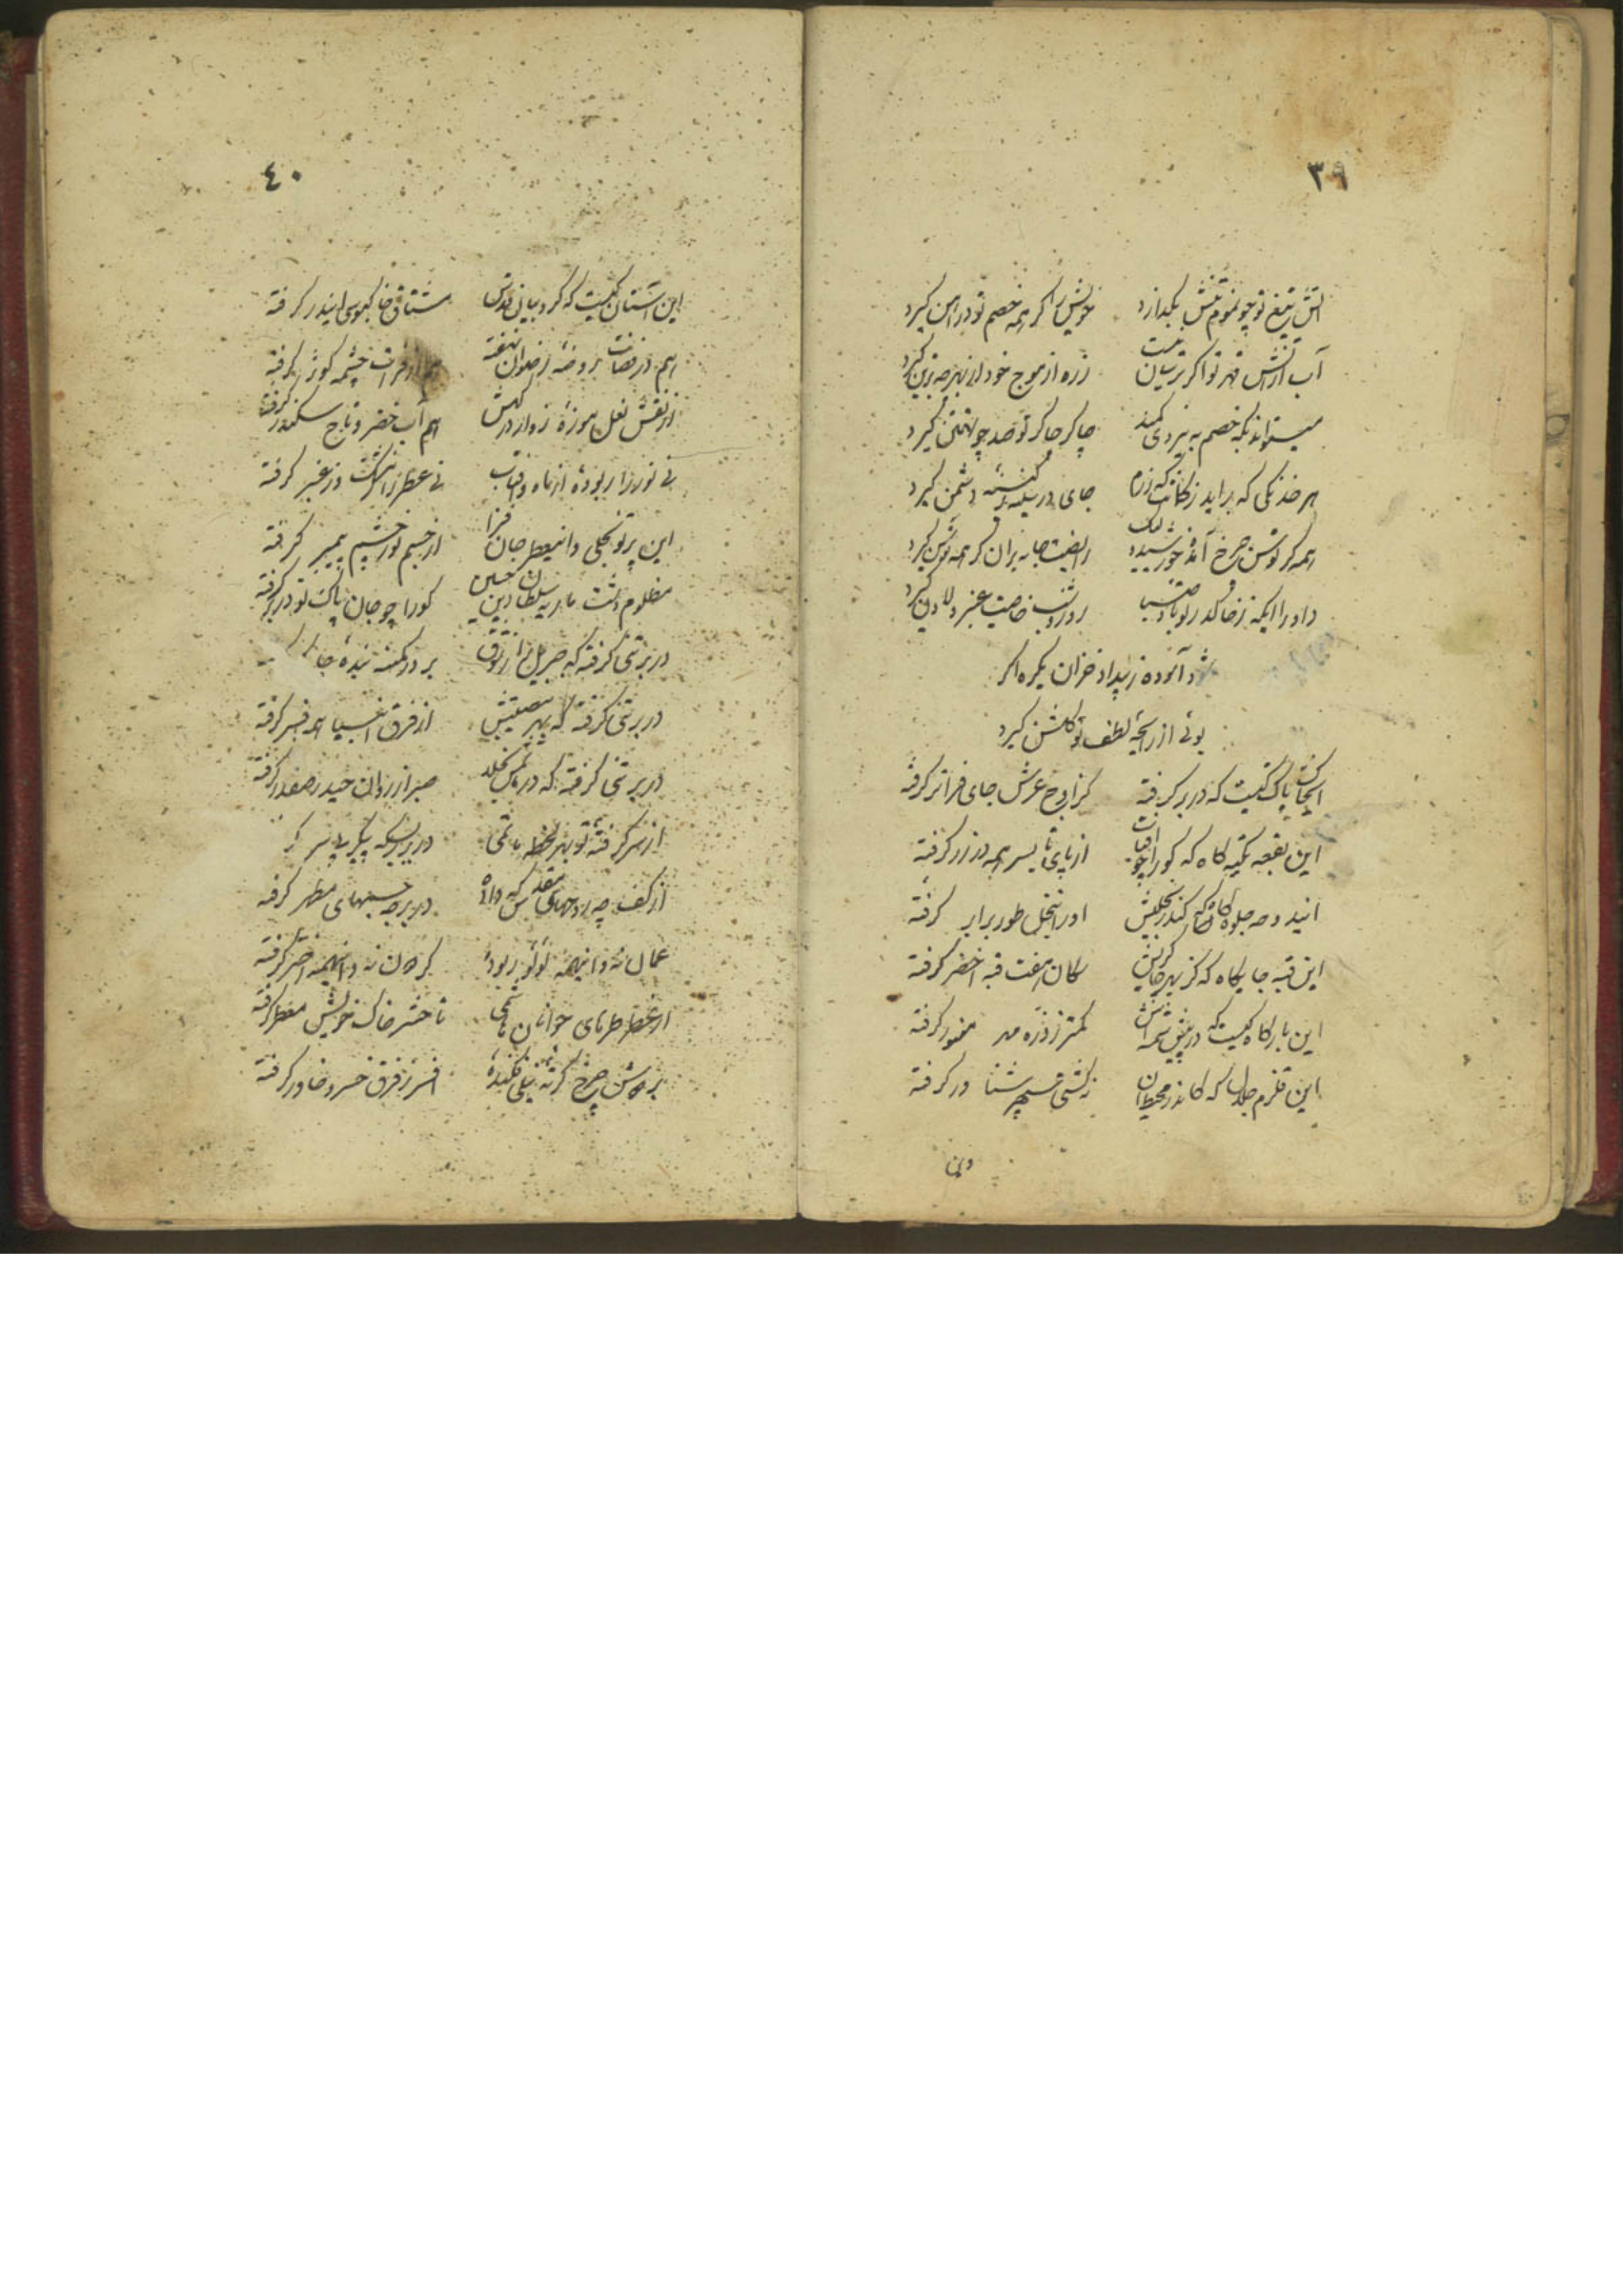 ۳۹
آتش تیغ تو چو موم تنش بگدازد خویش را گر همه خصم تو در آهن گیرد
آب از آتش قهر تو اگر ترسان نیست زره از موج خود از بهر چه بر تن گیرد
میتواند که خصم به نیروی کمند چاکر چاکر تو صد چو تهمتن گیرد
هر خدنگی که براید ز کمانت که رزم جای در سینه کینه دشمن گیرد
همه گر توسن چرخ آمده خورشید رایضت جابه بران گر همه توسن گیرد
داورا ایکه ز خاک در تو باد صبا روز و شب خاصیت عنبر و لادن گیرد
شود آسوده ز بیداد خزان یکره اگر
بوئی از رایحه لطف تو گلشن گیرد
این خاک پاک کیست که در بر گرفته کز اوج عرش جای فراتر گرفته
این بقعه تکیه گاه که کو را چو آفتاب از پای تا بسر همه در زر گرفته
او را بتجلی طور برابر گرفته
این قبه جایگاه که کز بهر کان هفت قبه اخضر گرفته
این بارگاه کیست که در پیش شمسه اش کمتر ز ذره مهر منور گرفته
این قلزم جلال که کاندر محیط آن نه کشتی سپهر شناور گرفته
وین
۴۰
این آستان کیست که کروبیان قدس مشتاق خاکبوسی ایندر گرفته
هم در فضات روضه رضوان نهفته هم از فرات چشمه کوثر گرفته
از نقش نعل موزه زوار درگهش هم آب خضر و تاج سکندر گرفته
نی نور را ربوده از ماه و آفتاب نی عطر را ز مشک و ز عنبر گرفته
این پرتو تجلی و اینعطر جان فزا از جسم نور چشم پیمبر گرفته
مظلوم دشت ماریه سلطان دین حسین کو را چو جان پاک تو در بر گرفته
در بر تنی گرفته که جبریل را ز شوق بر درگهش
در بر تنی گرفته که بهر مصیبتش از فرق انبیا همه افسر گرفته
در بر تنی گرفته که در ماتمش بخلد صبر از روان حیدر صفدر گرفته
از سر گرفته تو بهر لحظه ماتمی در بر پیکر بی سر
از کف چه رو جهانی که داده در بر چه جسمهای مطهر گرفته
عمان نه و اینهمه لؤلؤ ربوده گردون نه و اینهمه اختر گرفته
از عطر طره های جوانان هاشمی تا حشر خاک خویش معطر گرفته
بر دوش چرخ کرته نیلی فکنده افسر ز فرق خسرو خاور گرفته